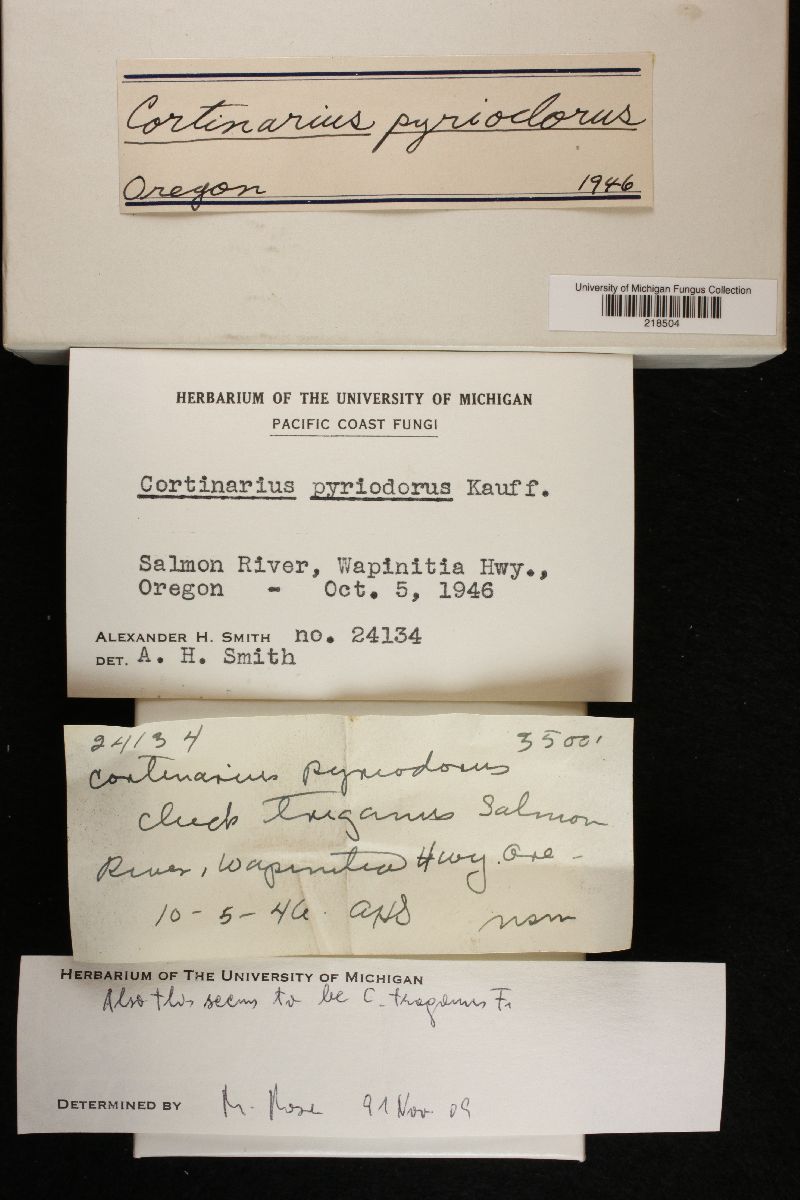 Cortinarius pyriodorus
Oregon 1946
University of Michigan Fungus Collection
218504
HERBARIUM OF THE UNIVERSITY OF MICHIGAN
PACIFIC COAST FUNGI
Cortinarius pyriodorus Kauff.
Salmon River, Wapinitia Hwy.,
Oregon - Oct. 5, 1946
ALEXANDER H. SMITH no. 24134
DET. A. H. Smith
24134 3500'
Cortinarius pyriodorus
check Traganus Salmon
River, Wapinitia Hwy. Ore -
10-5-46. AHS nsm
HERBARIUM OF THE UNIVERSITY OF MICHIGAN
Also this seems to be C. traganus Fr
DETERMINED BY M. Moser 91 Nov. 09